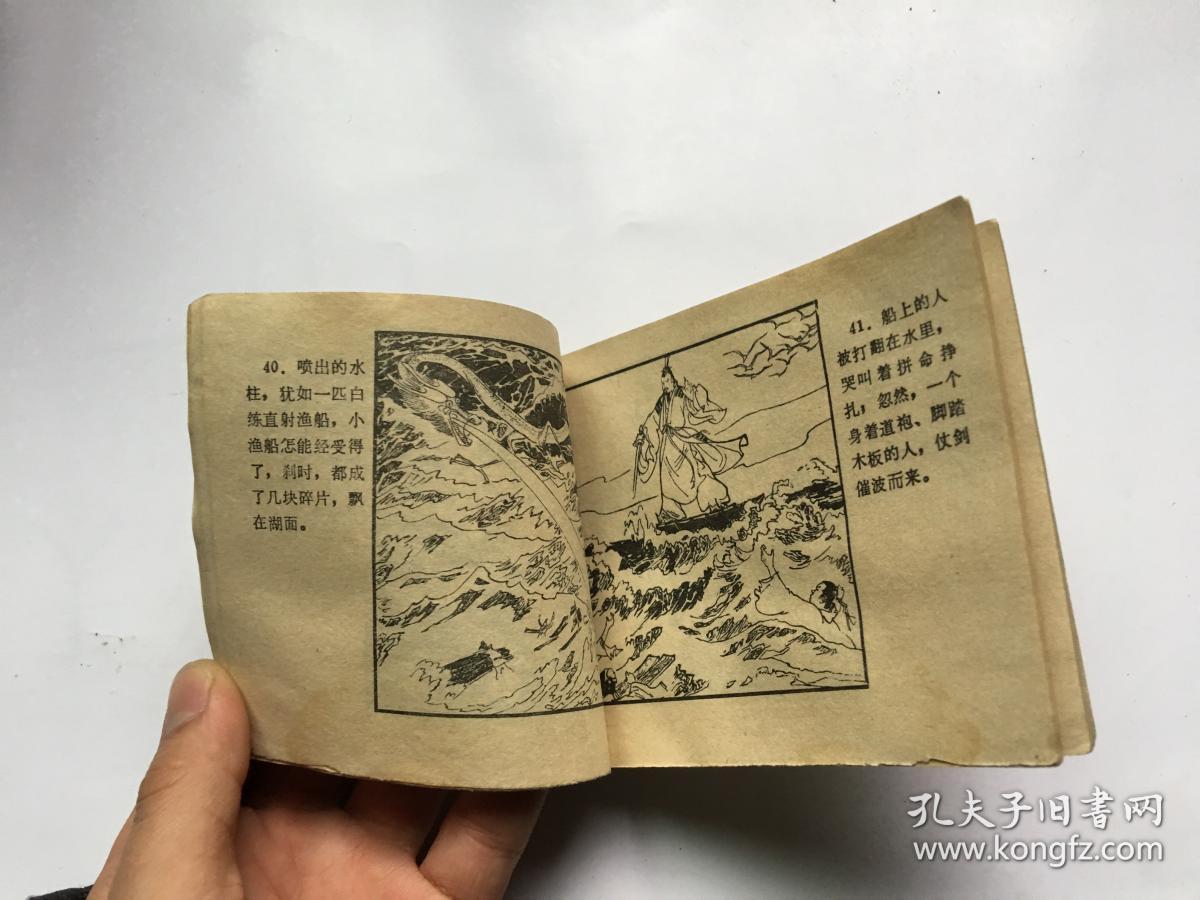 40．喷出的水
柱，犹如一匹白
练直射渔船，小
渔船怎能经受得
了，刹时，都成
了几块碎片，飘
在湖面。
41．船上的人
被打翻在水里，
哭叫着拼命挣
扎，忽然，一个
身着道袍、脚踏
木板的人，仗剑
催波而来。
孔夫子旧书网
www.kongfz.com